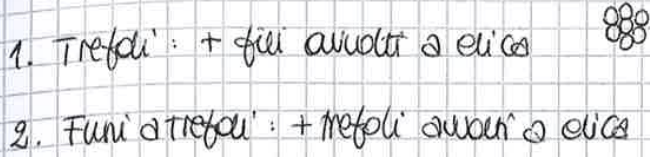 1. Trefoli : + fili avvolti a elica
2. Funi a trefoli : + trefoli avvolti a elica